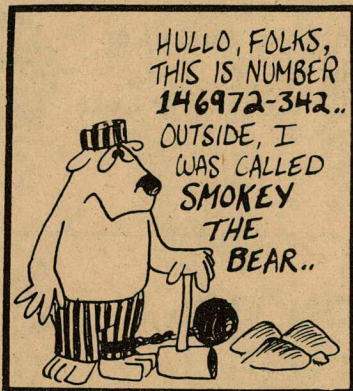 HULLO, FOLKS,
THIS IS NUMBER
146972-342..
OUTSIDE, I
WAS CALLED
SMOKEY
THE
BEAR..